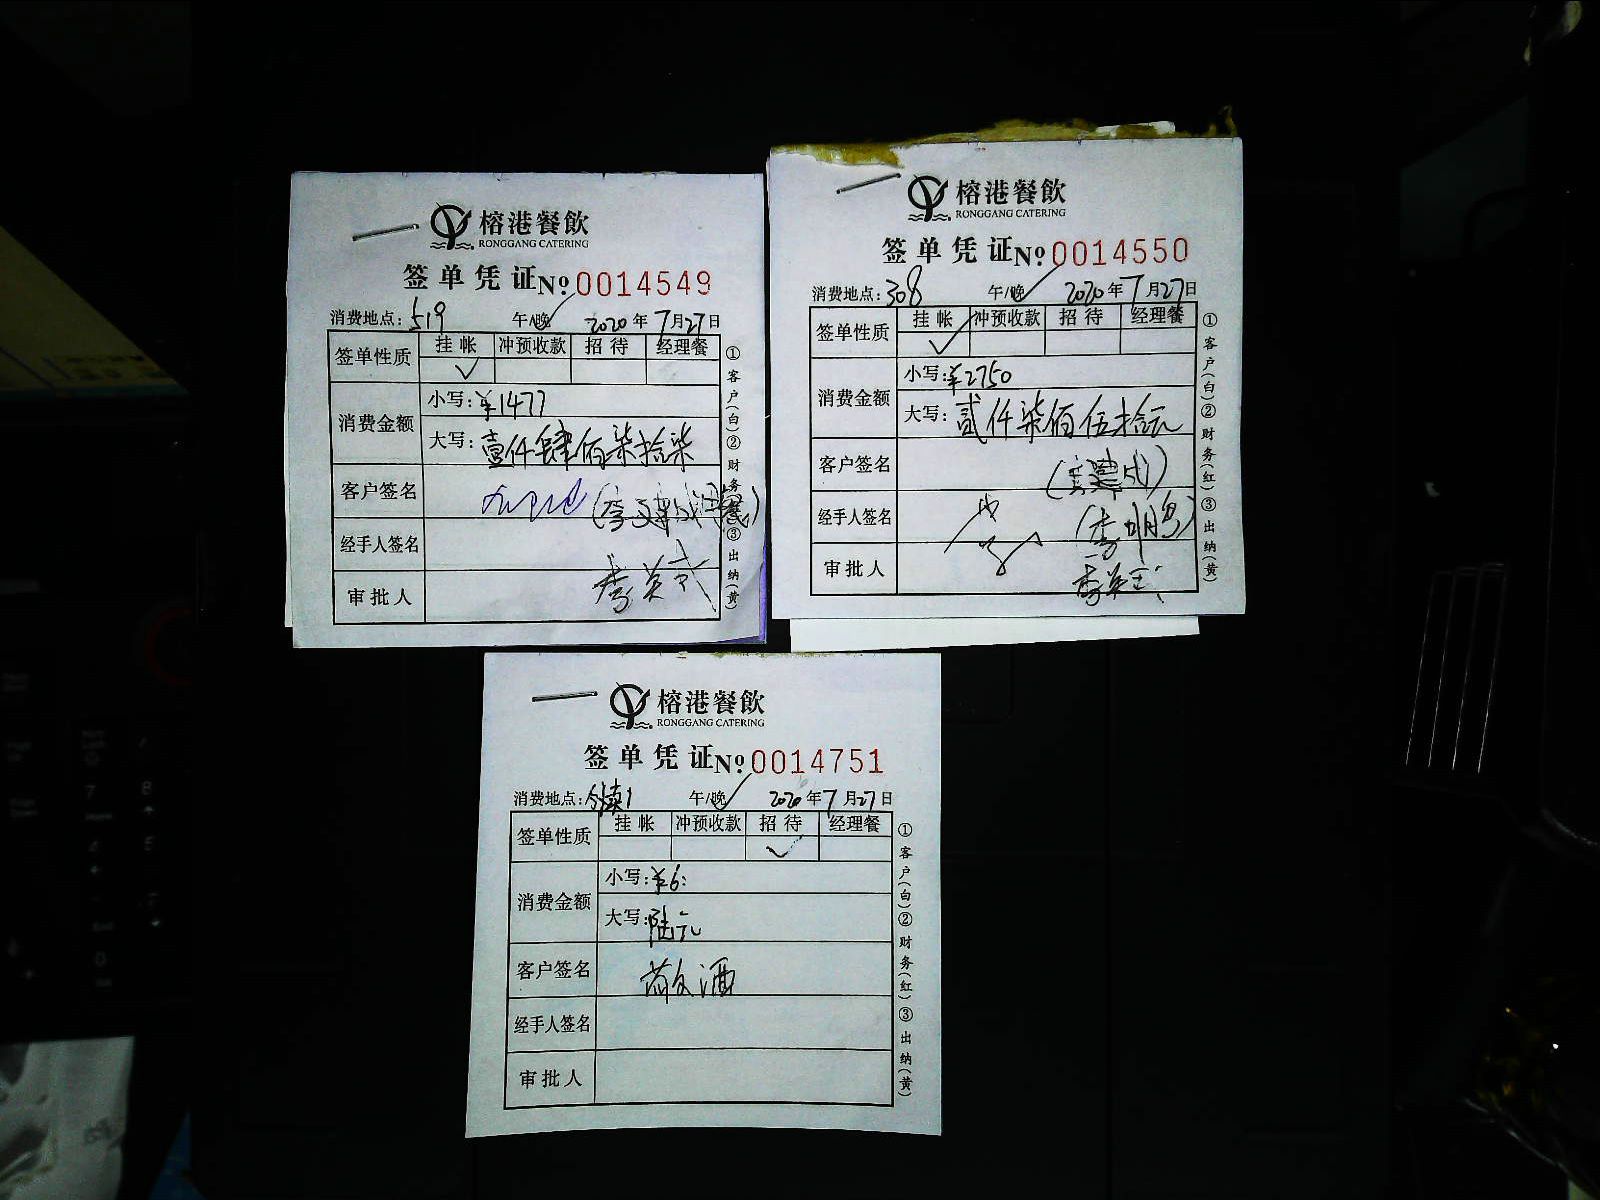 榕港餐飲
RONGGANG CATERING
签单凭证 №0014549
消费地点：519 午/晚 2020年7月27日
签单性质 挂帐 冲预收款 招待 经理餐
✓
消费金额 小写：¥1477
大写：壹仟肆佰柒拾柒
客户签名
经手人签名
审批人
①客户(白)②财务(红)③出纳(黄)
榕港餐飲
RONGGANG CATERING
签单凭证 №0014550
消费地点：308 午/晚 2020年7月27日
签单性质 挂帐 冲预收款 招待 经理餐
✓
消费金额 小写：¥2750
大写：贰仟柒佰伍拾元
客户签名
经手人签名
审批人
①客户(白)②财务(红)③出纳(黄)
榕港餐飲
RONGGANG CATERING
签单凭证 №0014751
消费地点： 午/晚 2020年7月27日
签单性质 挂帐 冲预收款 招待 经理餐
✓
消费金额 小写：¥6
大写：陆元
客户签名
经手人签名
审批人
①客户(白)②财务(红)③出纳(黄)